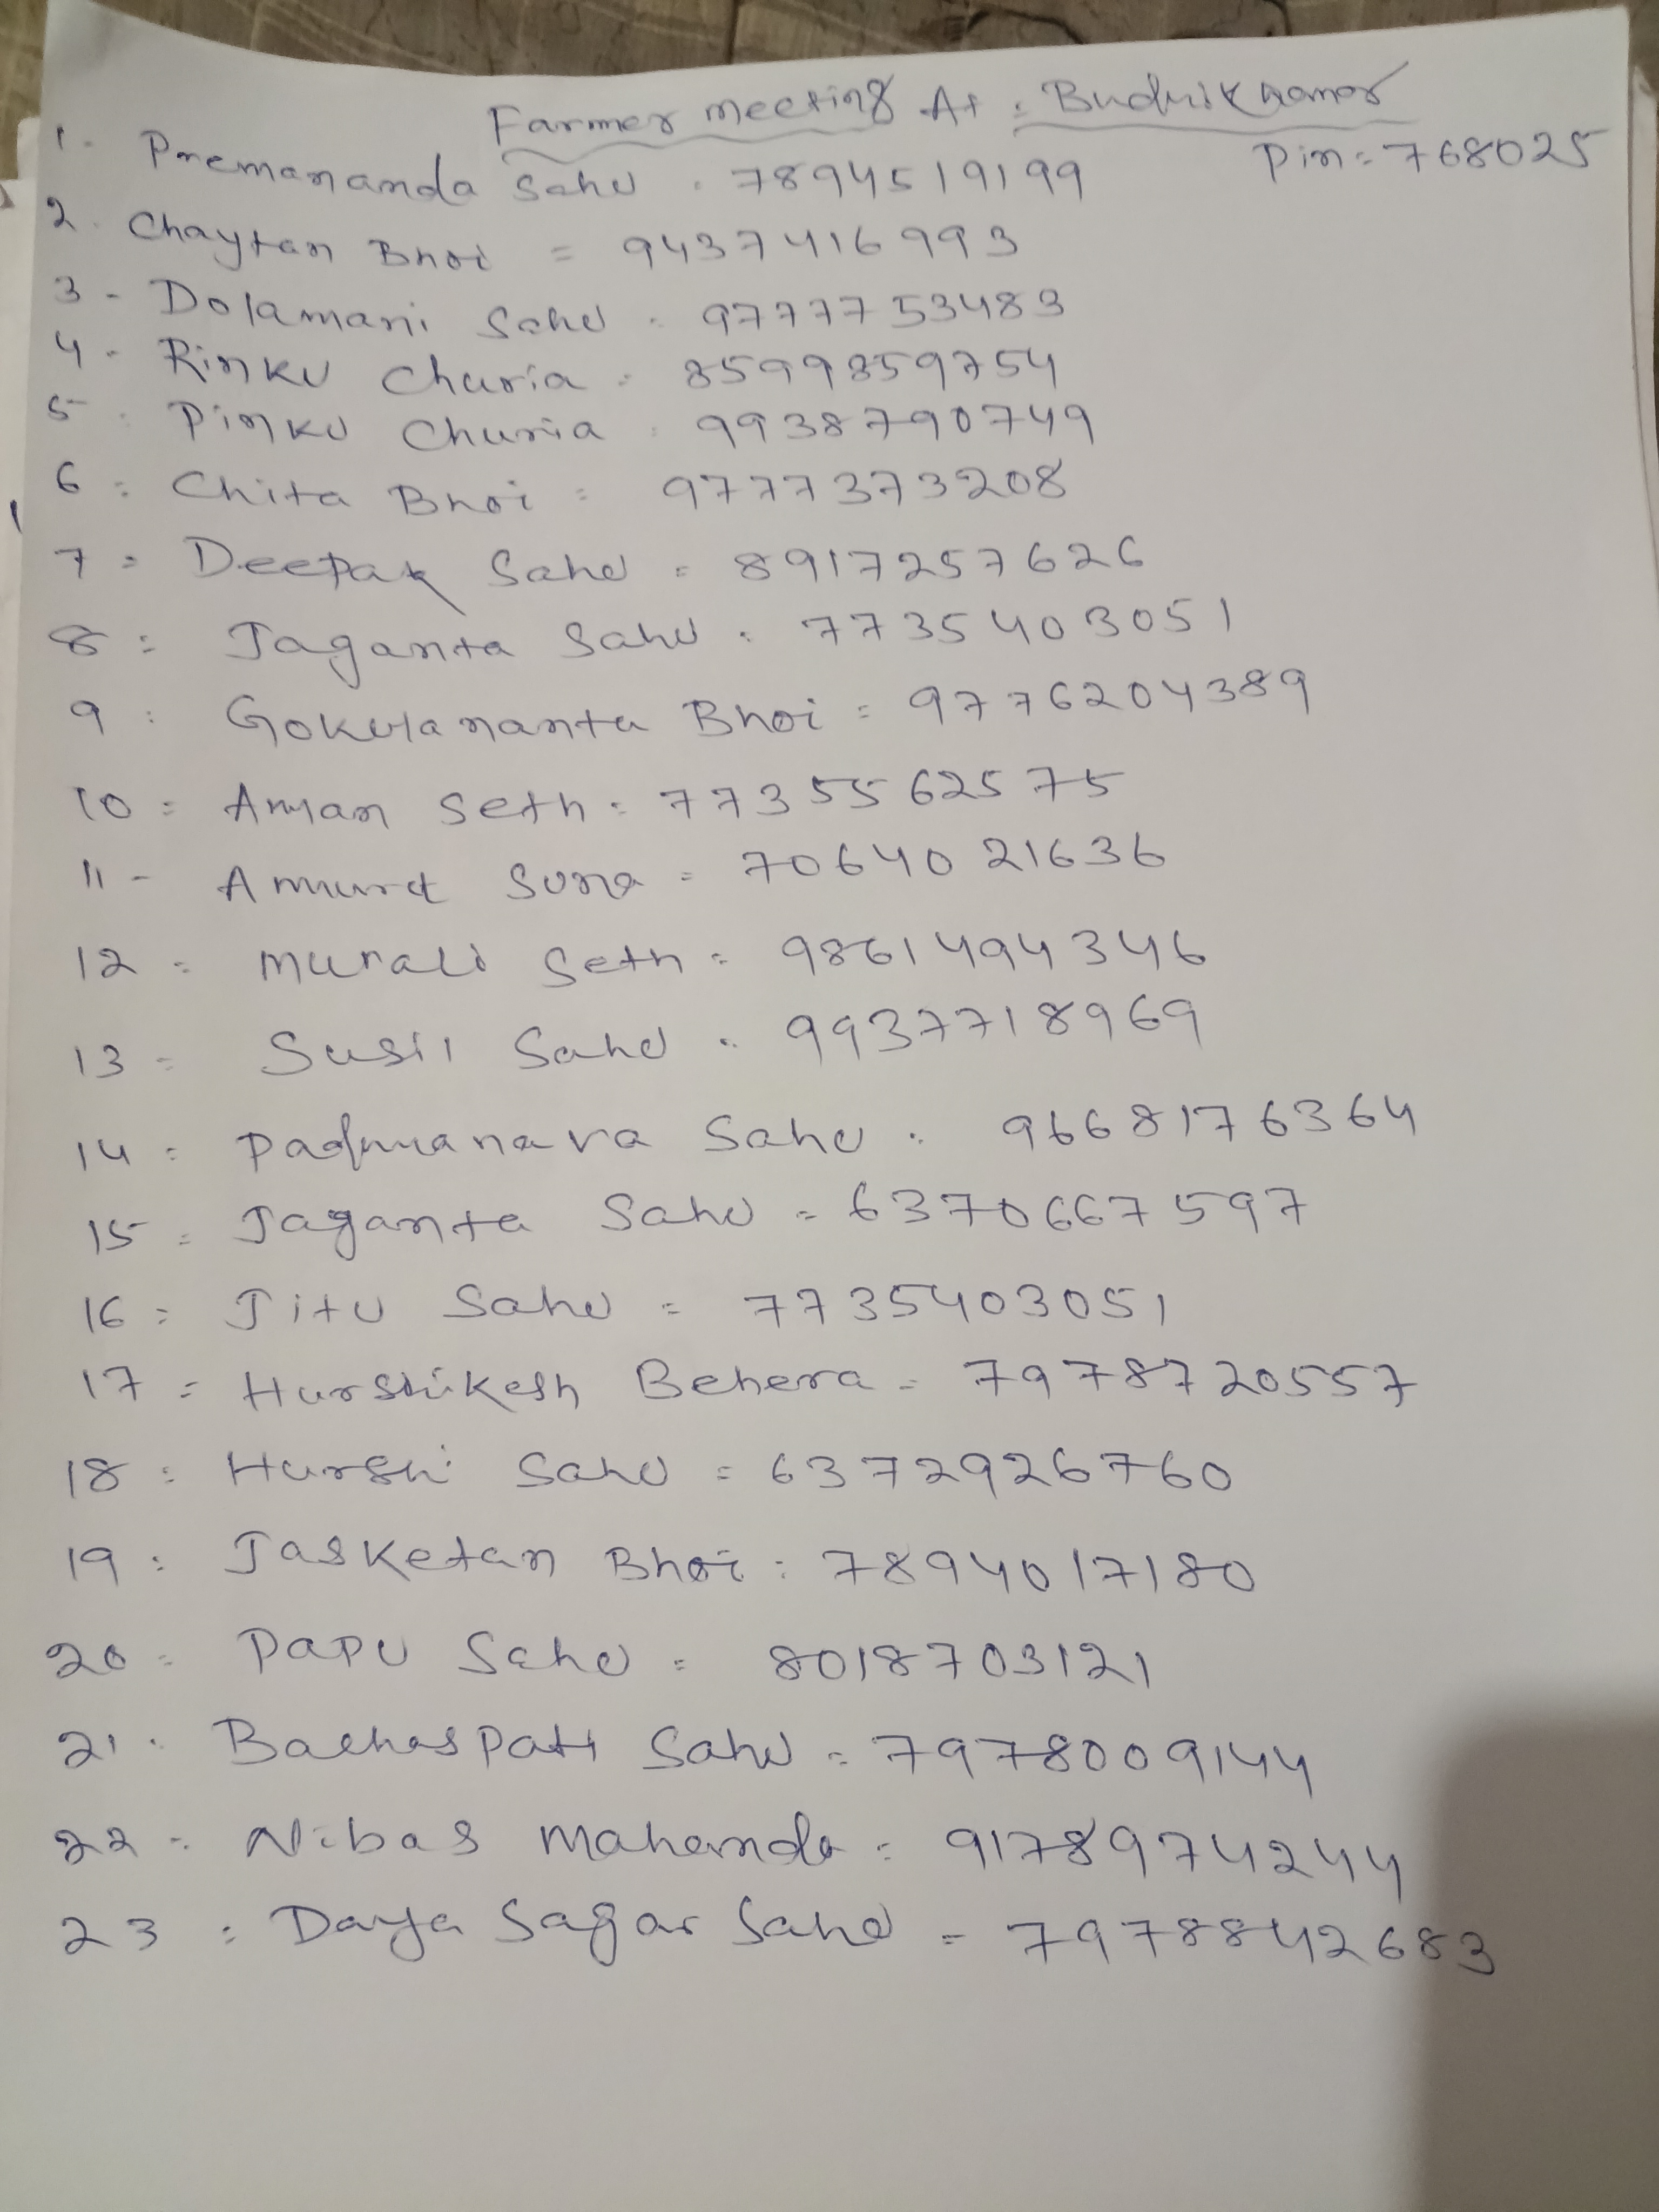 Farmer meeting At = Budhikhamar
Pin = 768025
1. Premananda Sahu . 7894519199
2. Chaytan Bhoi = 9437416993
3 - Dolamani Sahu . 9777753483
4 - Rinku Churia . 8599859754
5 . Pinku Churia . 9938790749
6 = Chita Bhoi = 9777373208
7 = Deepak Sahu = 8917257626
8 = Jaganta Sahu . 7735403051
9 : Gokulananta Bhoi = 9776204389
10 = Aman Seth = 7735562575
11 - Amurt Suna = 7064021636
12 = Murali Seth = 9861494346
13 = Susil Sahu . 9937718969
14 = Padmanava Sahu . 9668176364
15 = Jaganta Sahu = 6370667597
16 = Jitu Sahu = 7735403051
17 = Hurshikesh Behera = 7978720557
18 = Hurshi Sahu = 6372926760
19 = Jasketan Bhoi : 7894017180
20 = Papu Sahu = 8018703121
21 . Bachaspati Sahu = 7978009144
22 = Nibas Mahanda = 9178974244
23 = Daya Sagar Sahu = 7978842683